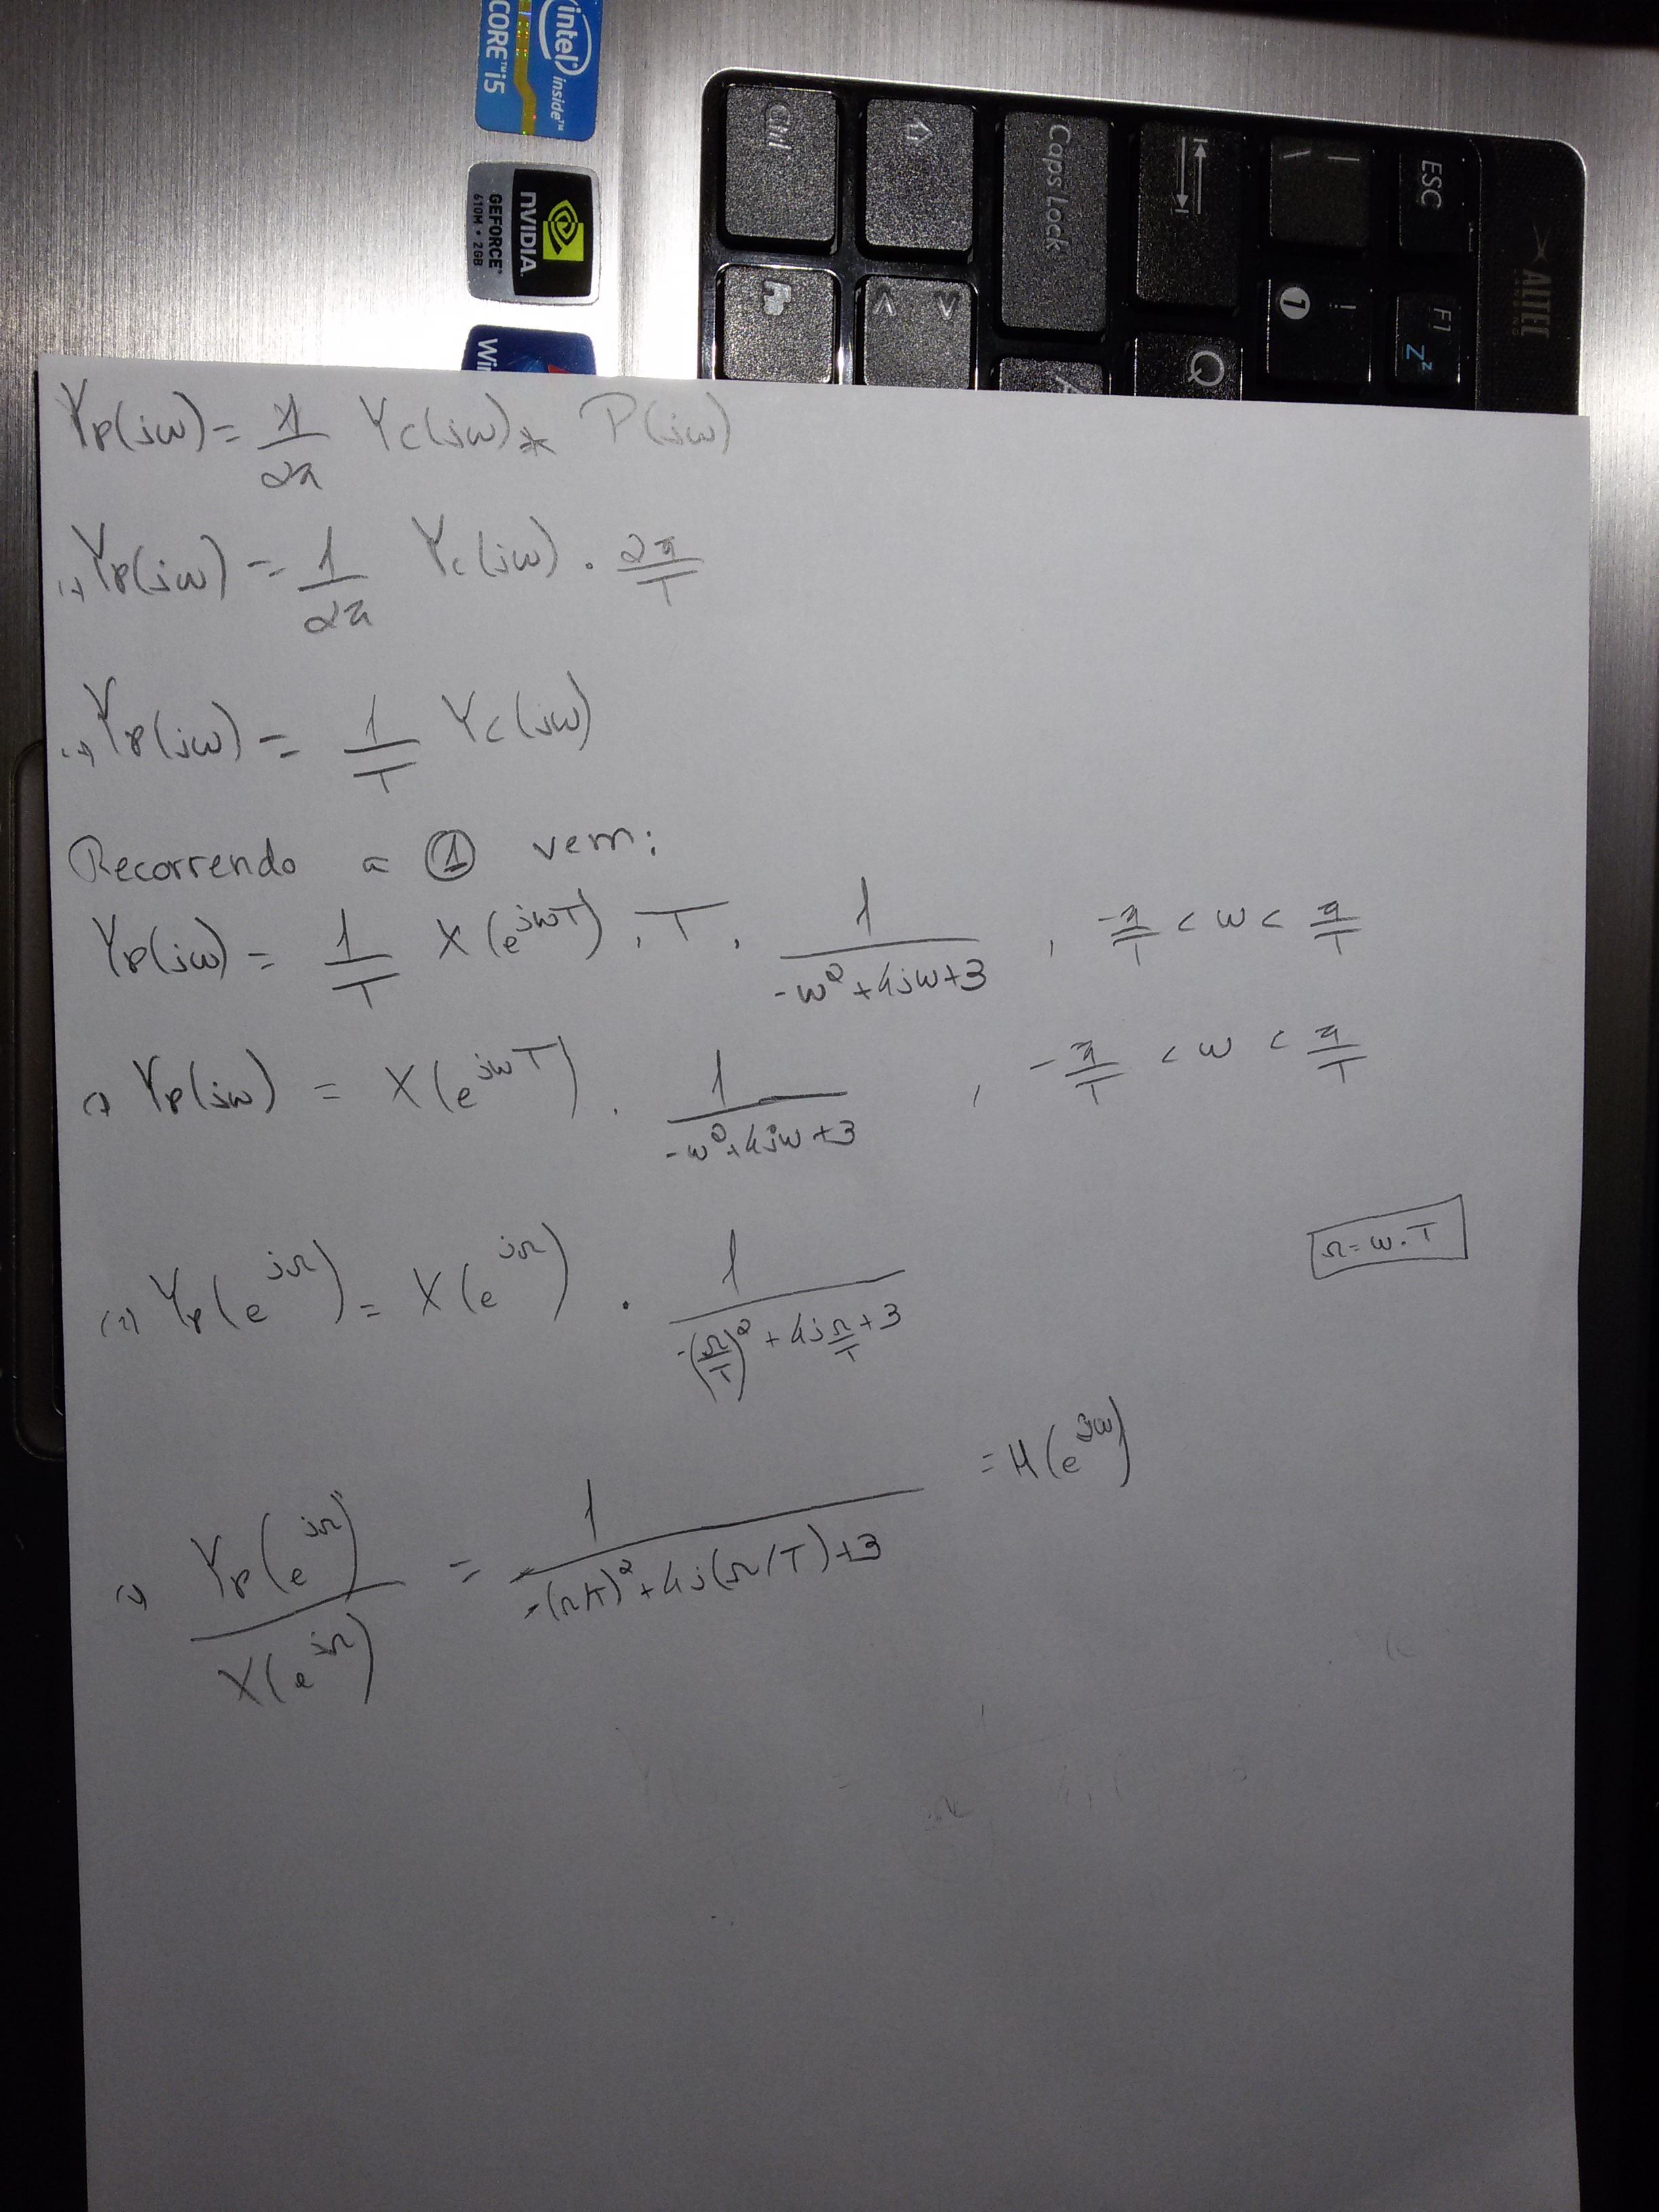 intel inside™
CORE™ i5
NVIDIA
GEFORCE®
610M • 2GB
Win
Ctrl
Caps Lock
ESC
\ |
Fn
< >
1 !
F1 Zz
Q
A
Yp(jω) = 1/2π Yc(jω) * P(jω)
(=) Yp(jω) = 1/2π Yc(jω) . 2π/T
(=) Yp(jω) = 1/T Yc(jω)
Recorrendo a ① vem:
Yp(jω) = 1/T X(e^jωT) . T . 1/(-ω²+4jω+3) , -π/T < ω < π/T
(=) Yp(jω) = X(e^jωT) . 1/(-ω²+4jω+3) , -π/T < ω < π/T
Ω = ω . T
(=) Yp(e^jΩ) = X(e^jΩ) . 1/(-(Ω/T)² + 4jΩ/T + 3)
(=) Yp(e^jΩ)/X(e^jΩ) = 1/(-(Ω/T)²+4j(Ω/T)+3) = H(e^jω)